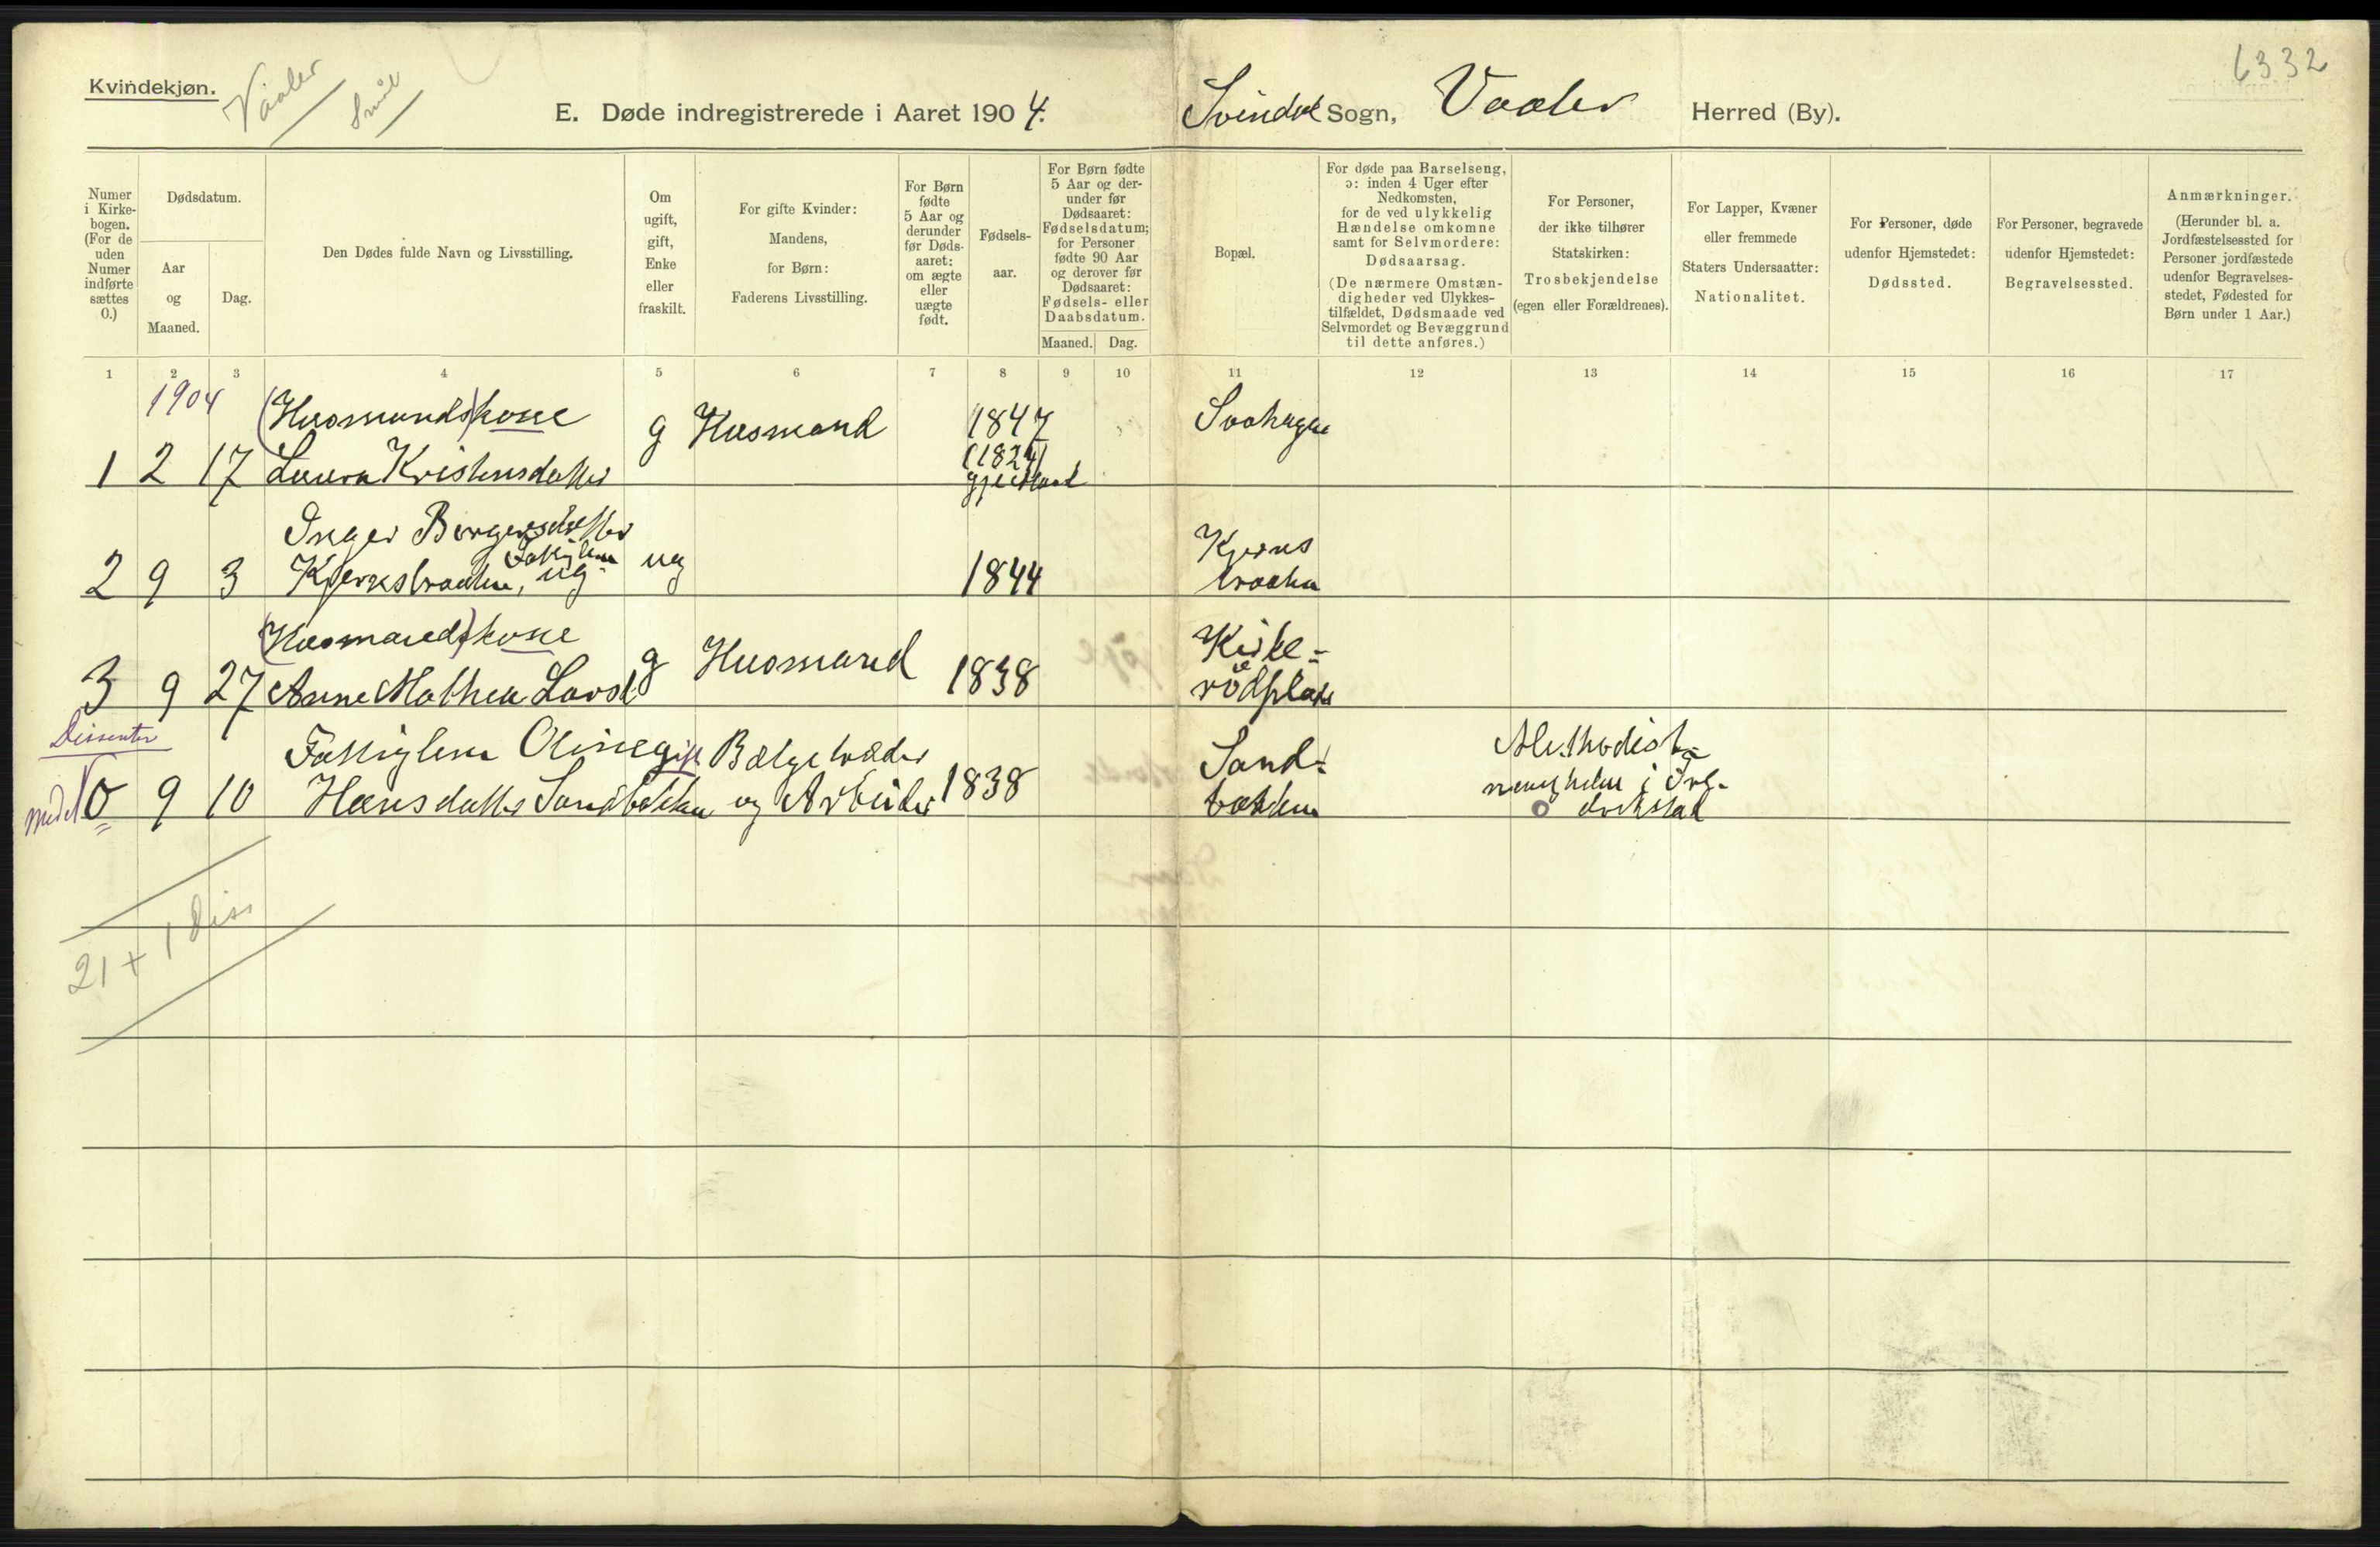 Kvindekjøn.
Vaaler
Smål
6332
E. Døde indregistrerede i Aaret 1904. Svindal Sogn, Vaaler Herred (By).
Numer i Kirkebogen. (For de uden Numer indførte sættes 0.)
Dødsdatum.
Aar og Maaned.
Dag.
Den Dødes fulde Navn og Livsstilling.
Om ugift, gift, Enke eller fraskilt.
For gifte Kvinder: Mandens, for Børn: Faderens Livsstilling.
For Børn fødte 5 Aar og derunder før Dødsaaret: om ægte eller uægte født.
Fødselsaar.
For Børn fødte 5 Aar og derunder før Dødsaaret: Fødselsdatum; for Personer fødte 90 Aar og derover før Dødsaaret: Fødsels- eller Daabsdatum.
Maaned. Dag.
Bopæl.
For døde paa Barselseng, ɔ: inden 4 Uger efter Nedkomsten, for de ved ulykkelig Hændelse omkomne samt for Selvmordere: Dødsaarsag.
(De nærmere Omstændigheder ved Ulykkestilfældet, Dødsmaade ved Selvmordet og Bevæggrund til dette anføres.)
For Personer, der ikke tilhører Statskirken: Trosbekjendelse (egen eller Forældrenes).
For Lapper, Kvæner eller fremmede Staters Undersaatter: Nationalitet.
For Personer, døde udenfor Hjemstedet: Dødssted.
For Personer, begravede udenfor Hjemstedet: Begravelsessted.
Anmærkninger. (Herunder bl. a. Jordfæstelsessted for Personer jordfæstede udenfor Begravelsesstedet, Fødested for Børn under 1 Aar.)
1 2 3 4 5 6 7 8 9 10 11 12 13 14 15 16 17
1904 (Husmands)kone g Husmand 1847 Svahagen
1 2 17 Laura Kristensdatter (1824)
Inger Borgersdatter Kjerns
Fattiglem
2 9 3 Kjernsbraaten, ug ug 1844 braaten
(Husmands)kone g Husmand Kirke=
3 9 27 Anne Mathea Larsd 1838 rødplads
Dissenter
Fattiglem Oline gift Bælgetræder Sand= Methodist=
medt 0 9 10 Hansdatter Sandbakken og Arbeider 1838 bakken menigheden i Fred-
rikstad
21 + 1 diss